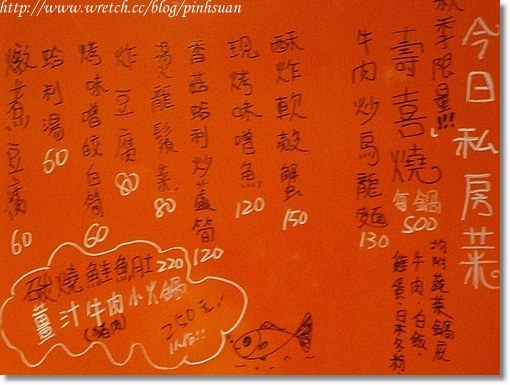 http://www.wretch.cc/blog/pinhsuan
今日私房菜
秋季限量!!
壽喜燒
每鍋
500
均附蔬菜鍋底
牛肉、白飯、
雞蛋、日本冬粉
牛肉炒烏龍麵
130
酥炸軟殼蟹
150
現烤味噌魚
120
香菇蛤利炒蘆筍
120
燙龍鬚菜
80
炸豆腐
80
烤味噌皎白筍
60
蛤利湯
60
燉煮豆腐
60
碳燒鮭魚肚 220
薑汁牛肉小火鍋
(豬肉)
250元